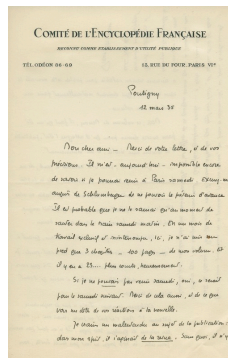 COMITÉ DE L'ENCYCLOPÉDIE FRANÇAISE
RECONNUE COMME ÉTABLISSEMENT D'UTILITÉ PUBLIQUE
TÉL. ODÉON 06-00 13, RUE DU FOUR. PARIS VIe
Pontigny
12 mars 35
Mon cher ami — Merci de votre lettre, et de vos
précisions. Il m'est — aujourd'hui — impossible encore
de savoir si je pourrai venir à Paris samedi.
auprès de Schlumberger de ne pouvoir le prévenir d'avance.
Il est probable que je ne le saurai qu'au moment de
sauter dans le train samedi matin. En un mois de
travail exclusif et ininterrompu, ici, je n'ai mis au
point que 3 chapitres — 100 pages — de mon volume. Et
il y en a 25... plus courts, heureusement.
Si je ne pouvais pas venir samedi, oui, ce serait
pour le samedi suivant. Merci de cela aussi, et de ce que
vous me dites de vos réactions à la nouvelle.
Je crains un malentendu au sujet de la publication :
dans mon esprit, il s'agissait de la revue. Sans quoi, il n'y